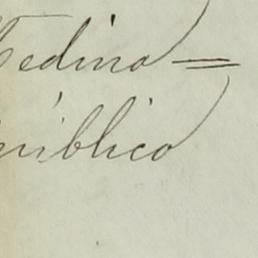 Medina=
público